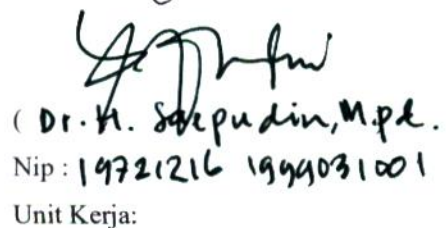 ( Dr. H. Saepudin, M.pd.
Nip : 19721216 1999031001
Unit Kerja: